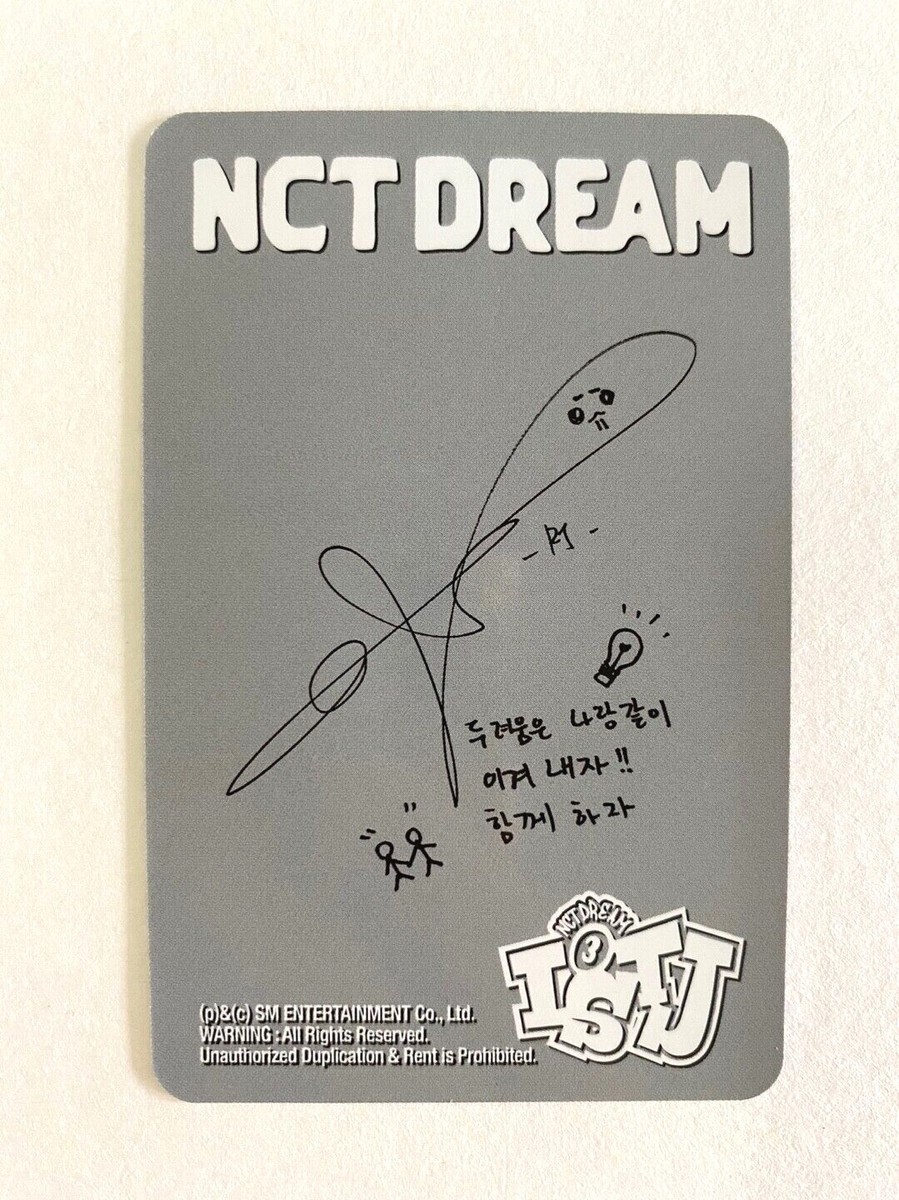 NCT DREAM
-RJ-
두려움은 나랑같이
이겨 내자!!
함께 하자
NCT DREAM
3
ISTJ
(p)&(c) SM ENTERTAINMENT Co., Ltd.
WARNING : All Rights Reserved.
Unauthorized Duplication & Rent is Prohibited.